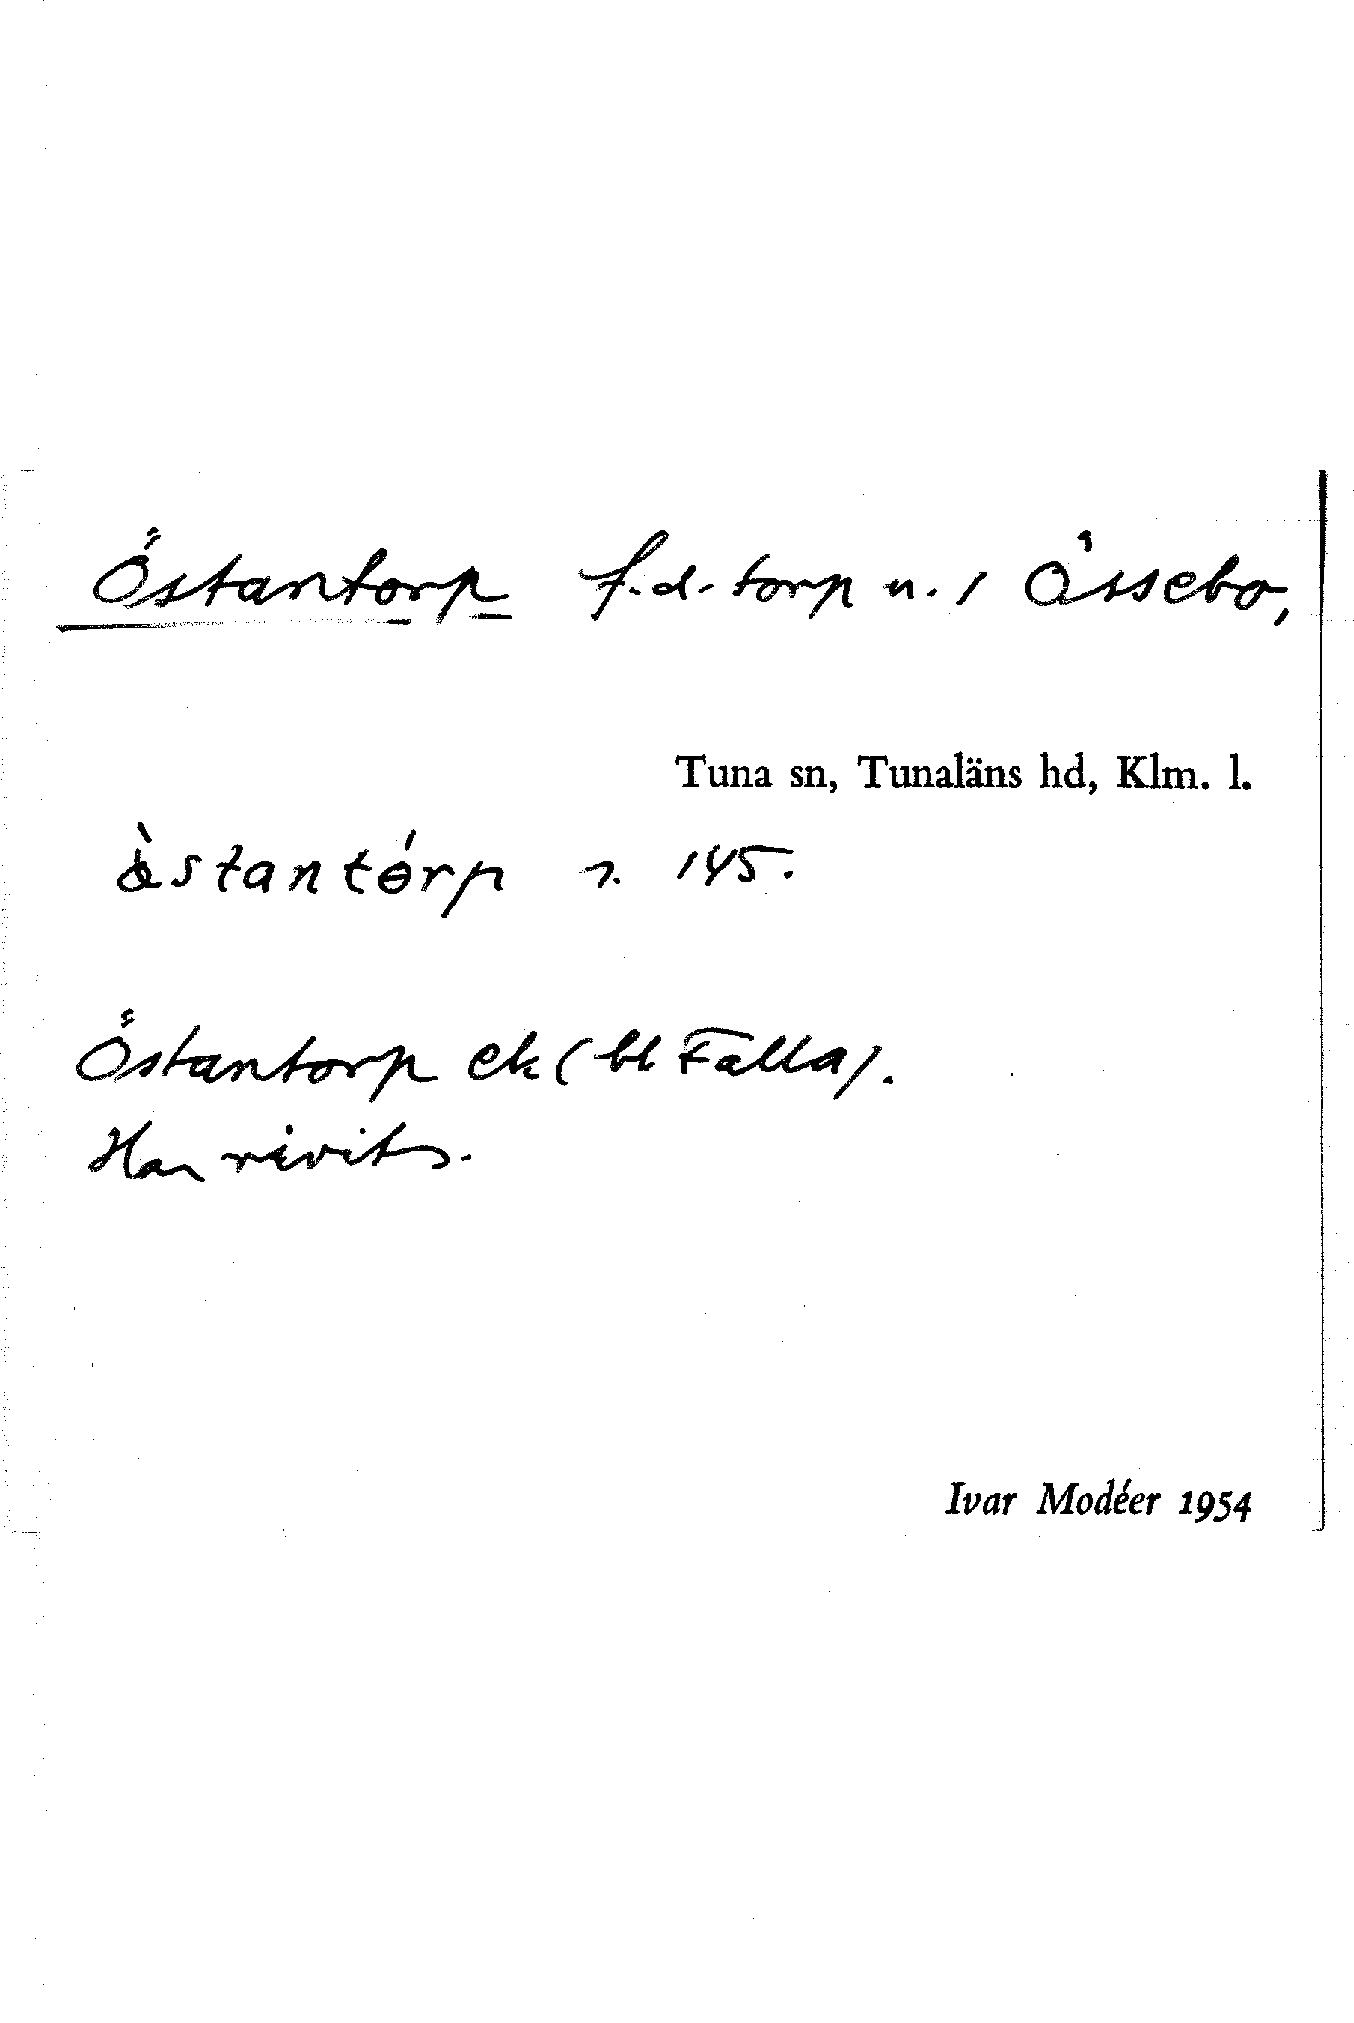 Östantorp f.d. torp u. / Össebo,
Tuna sn, Tunaläns hd, Klm. l.
östantórp 7. 145.
Östantorp ek (bl Falla).
Har rivits.
Ivar Modéer 1954